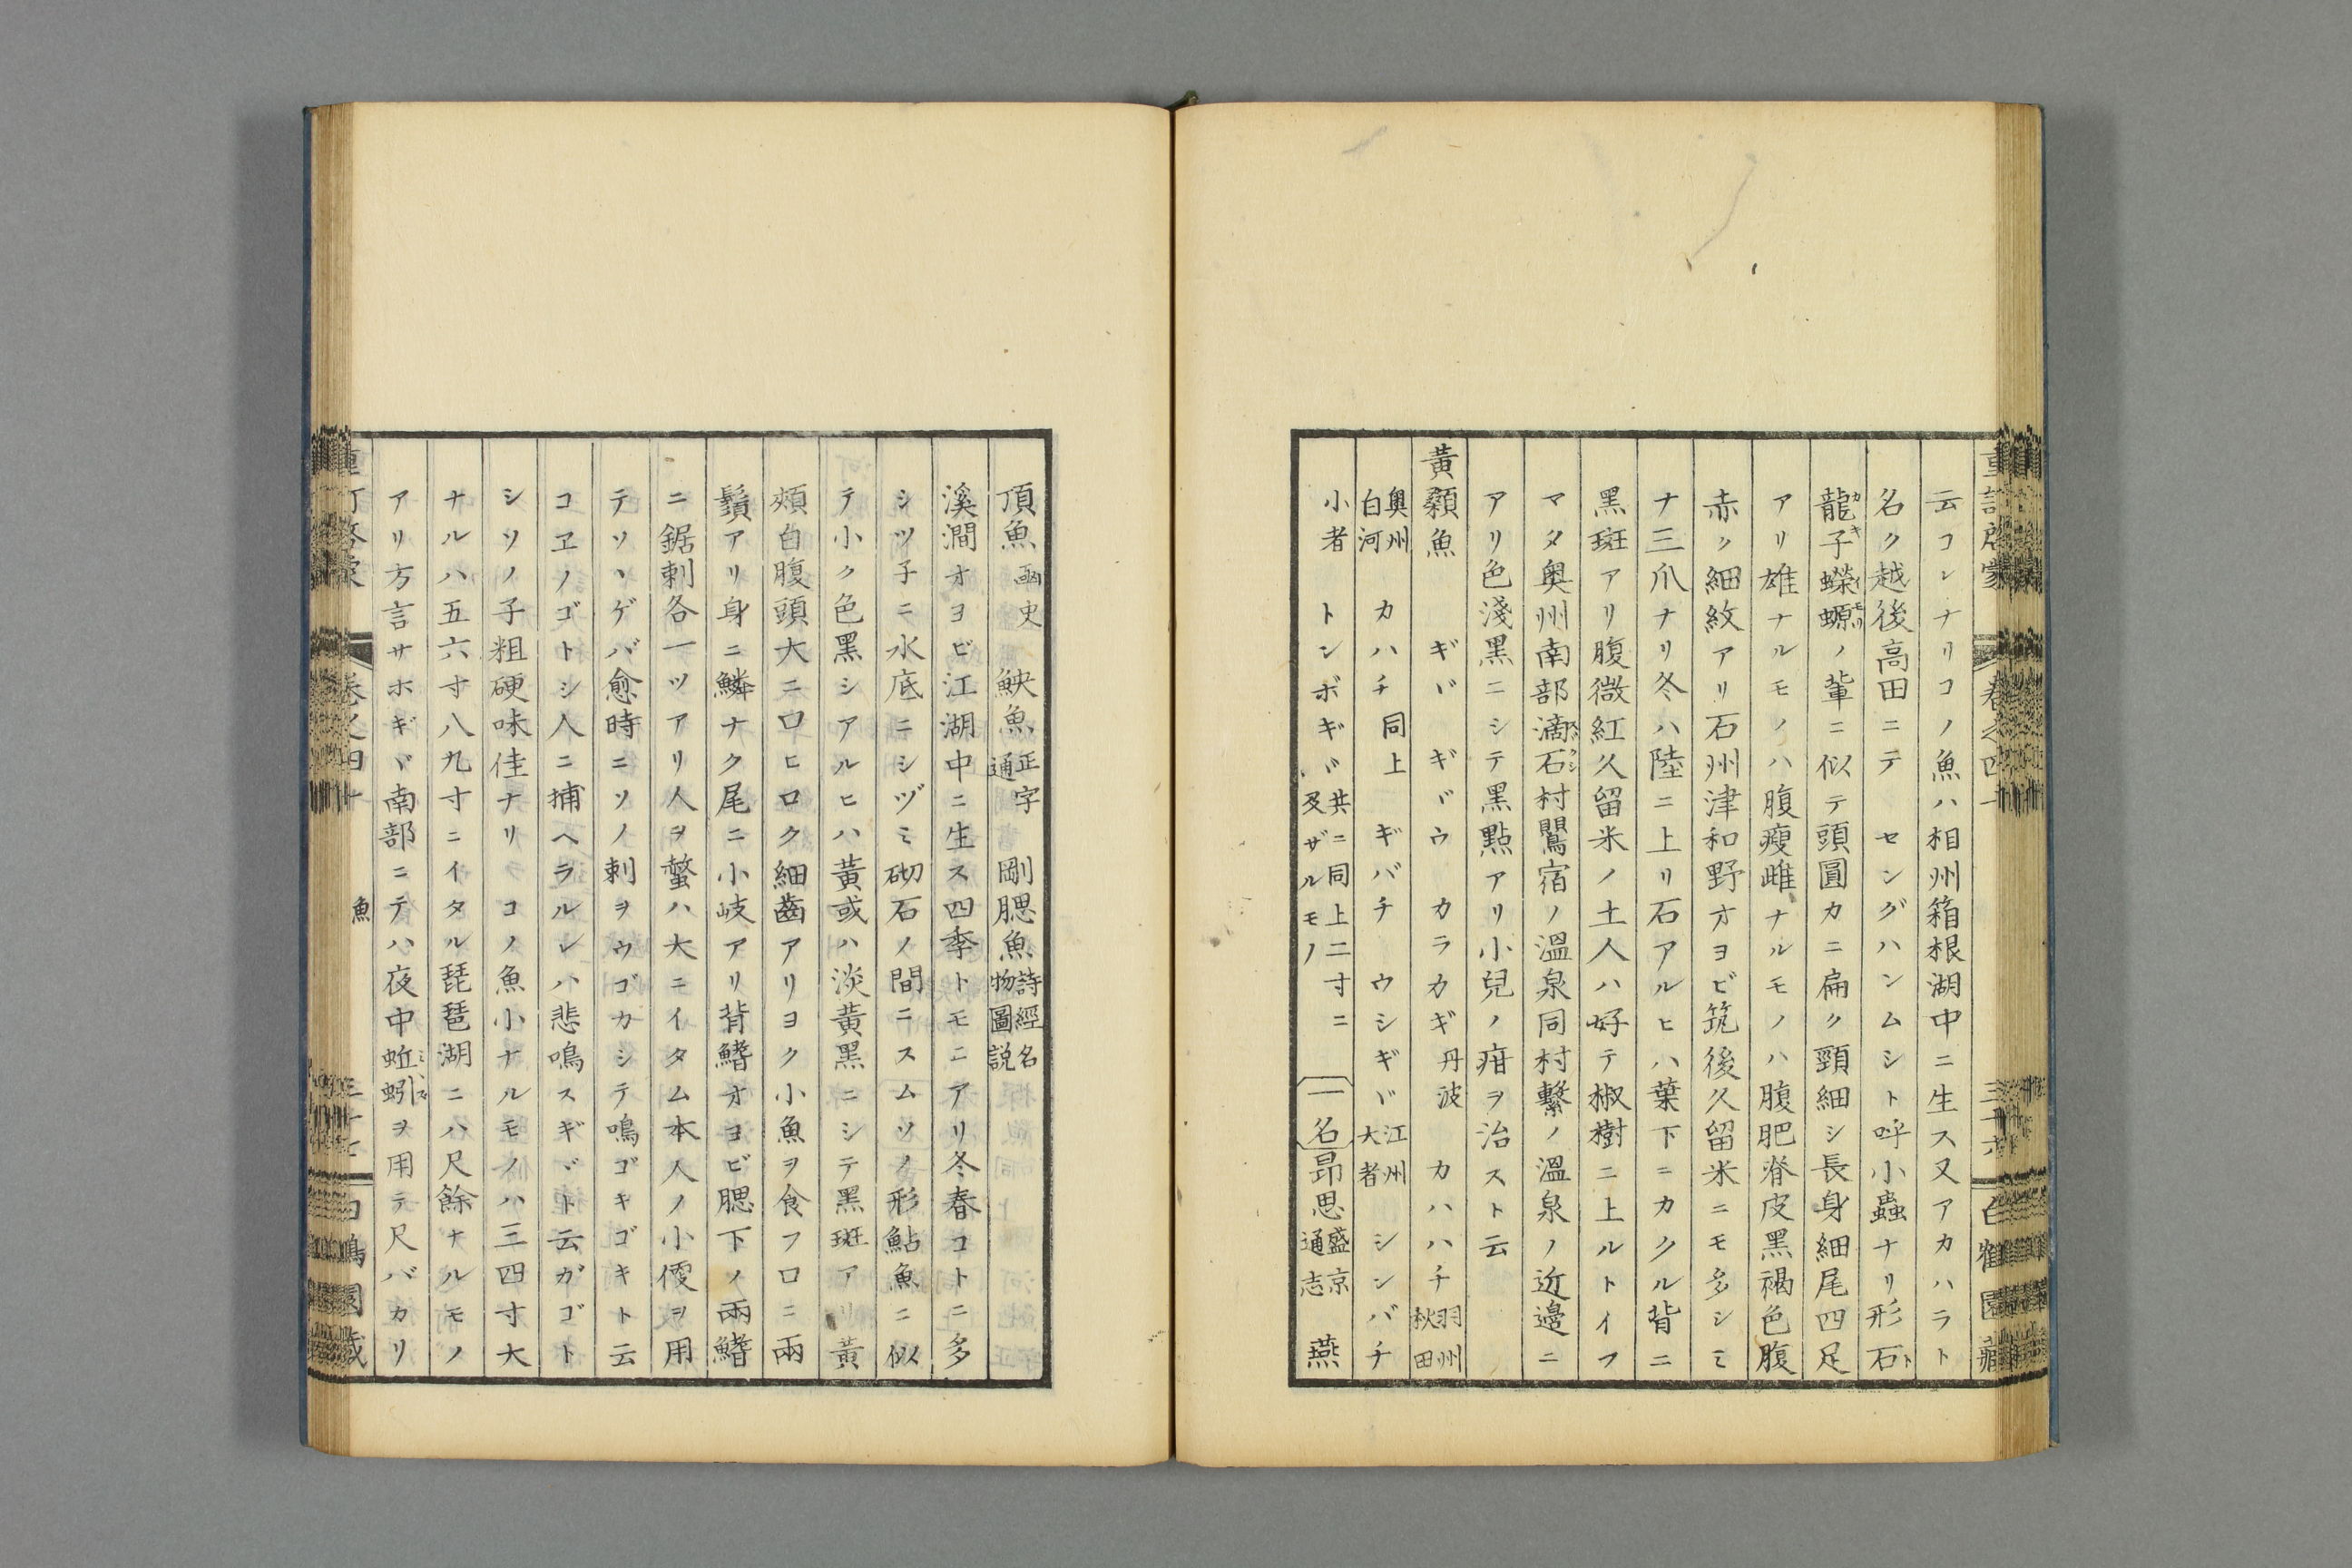 云コレナリコノ魚ハ相州箱根湖中ニ生ス又アカハラト
名ク越後高田ニテ センゲハンムシト呼小蟲ナリ形石ト
龍子蠑螈ノ軰ニ似テ頭圓カニ扁ク頸細シ長身細尾四足
アリ雄ナルモノハ腹瘦雌ナルモノハ腹肥脊皮黑褐色腹
赤ク細紋アリ石州津和野オヨビ筑後久留米ニモ多シミ
ナ三爪ナリ冬ハ陸ニ上リ石アルヒハ葉下ニカクル背ニ
黑斑アリ腹微紅久留米ノ土人ハ好テ椒樹ニ上ルトイフ
マタ奥州南部滴石村鶯宿ノ溫泉同村繫ノ溫泉ノ近邊ニ
アリ色淺黑ニシテ黑點アリ小兒ノ疳ヲ治スト云
黃顙魚 ギヾ ギヾウ カラカギ丹波 カハハチ羽州秋田
奥州白河 カハチ同上 ギバチ ウシギヾ江州大者 シンバチ
小者 トンボギヾ共ニ同上二寸ニ及ザルモノ 一名昂思盛京通志 燕
頂魚函史 鉠魚正字通 剛腮魚詩經名物圖說
溪澗オヨビ江湖中ニ生ス四季トモニアリ冬春コトニ多
シツ子ニ水底ニシヅミ砌石ノ間ニスムソノ形鮎魚ニ似
テ小ク色黑シアルヒハ黃或ハ淡黃黑ニシテ黑斑アリ黃
頰白腹頭大ニ口ヒロク細齒アリヨク小魚ヲ食フ口ニ兩
鬚アリ身ニ鱗ナク尾ニ小岐アリ背鰭オヨビ腮下ノ兩鰭
ニ鋸刺各一ツアリ人ヲ螫ハ大ニイタム本人ノ小便ヲ用
テソヽゲバ愈時ニソノ刺ヲウゴカシテ鳴ゴキゴキト云
コヱノゴトシ人ニ捕ヘラルレハ悲鳴スギヾト云ガゴト
シソノ子粗硬味佳ナリコノ魚小ナルモノハ三四寸大
ナルハ五六寸八九寸ニイタル琵琶湖ニハ尺餘ナルモノ
アリ方言サホギヾ南部ニテハ夜中蚯蚓ヲ用テ尺バカリ
魚